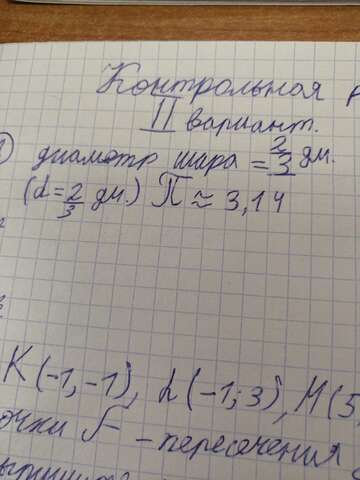 Контрольная р
II вариант.
диаметр шара = 2/3 дм.
(d = 2/3 дм.) П ≈ 3,14
К (-1, -1), L (-1; 3), М (5,
очки F - пересечения